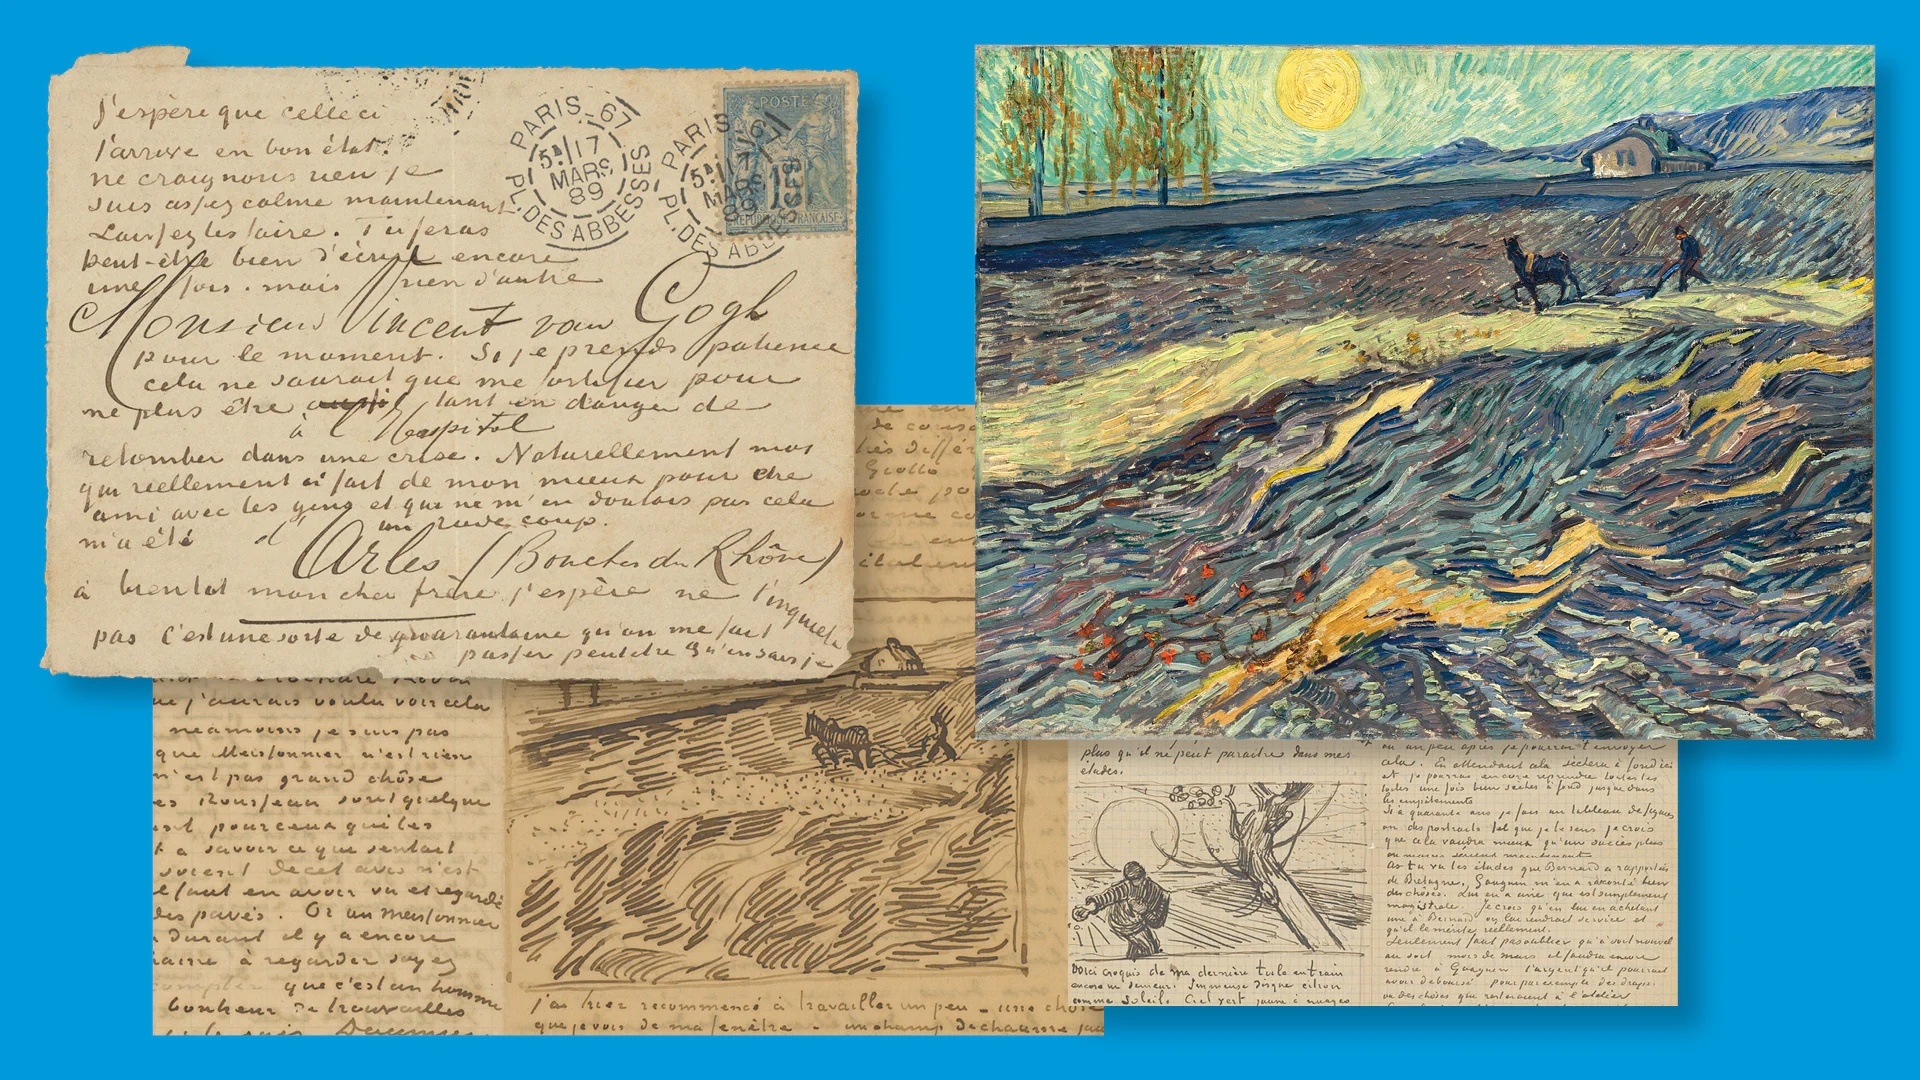 J'espère que celle ci
t'arrive en bon état.
ne craignons rien je
suis assez calme maintenant
Laissez les faire. Tu feras
peut-être bien d'écrire encore
une fois. mais rien d'autre
Monsieur Vincent van Gogh
pour le moment. Si je prends patience
cela ne saurait que me fortifier pour
ne plus être tant en danger de
à l'Hospital
retomber dans une crise. Naturellement moi
qui reellement ai fait de mon mieux pour être
ami avec les gens et qui ne m'en doutais pas cela
m'a été un rude coup.
d'Arles (Bouches du Rhône)
à bientot mon cher frère j'espère ne t'inquiete
pas C'est une sorte de quarantaine qu'on me fait
passer peutetre qu'en sais je
PARIS. 67
5E/17
MARS
89
PL. DES ABBESSES
PARIS. 67
MARS
89
PL. DES ABBE
POSTE
15
REPUBLIQUE FRANCAISE
de
Giotto
que j'aurais voulu voir cela
neamoins je suis pas
que Meissonnier n'est rien
n'est pas grand chôse
es Rousseau sont quelque
pour ceux qui les
a savoir ce que sentait
avec n'est
faut en avoir vu et regardé
des pavés. Or un Meissonnier
Durant il y a encore
à regarder soyez
que c'est un homme
bonheur de trouvailles
j'ai hier recommencé à travailler un peu – une chôse
que je vois de ma fenêtre – un champ de chaume jau
plus qu'il ne peut paraitre dans mes
études.
Voici croquis de ma dernière toile en train
encore un semeur. Immense disque citron
comme soleil. Ciel vert jaune à nuages
ou un peu après je pourrai t'envoyer
cela. En attendant cela sèchera à fond ici
et je pourrai encore reprendre toutes les
toiles une fois bien sèches à fond jusque dans
les empâtements
Si à quarante ans je fais un tableau de figures
ou des portraits tel que je le sens je crois
que cela vaudra mieux qu'un succès plus
ou moins sérieux maintenant
As tu vu les études que Bernard a rapportées
de Bretagne, Gauguin m'en a raconté bien
des chôses. Lui en a une qui est simplement
magistrale. Je crois qu'en lui en achetant
une à Bernard on lui rendrait service et
qu'il le mérite réellement.
Seulement faut pas oublier qu'à
au mois de mars il faudra encore
rendre à Gauguin l'argent qu'il pourrait
avoir déboursé pour par exemple des draps
ou des choses qui resteraient à l'atelier